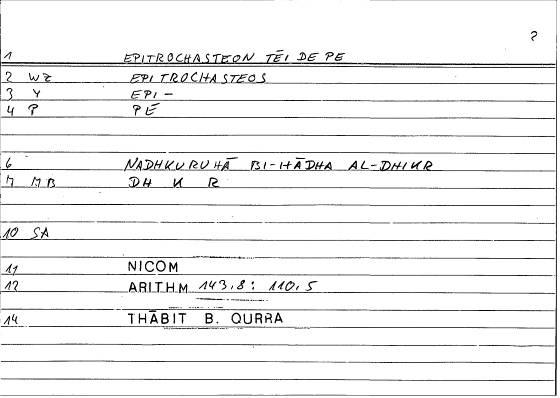 ?
1 EPITROCHASTEON TĒI DE PE
2 WZ EPITROCHASTEOS
3 Y EPI-
4 P PĒ
6 NADHKURUHĀ BI-HĀDHA AL-DHIKR
7 MB DH K R
10 SA
11 NICOM
12 ARITHM 143,8: 110,5
14 THĀBIT B. QURRA